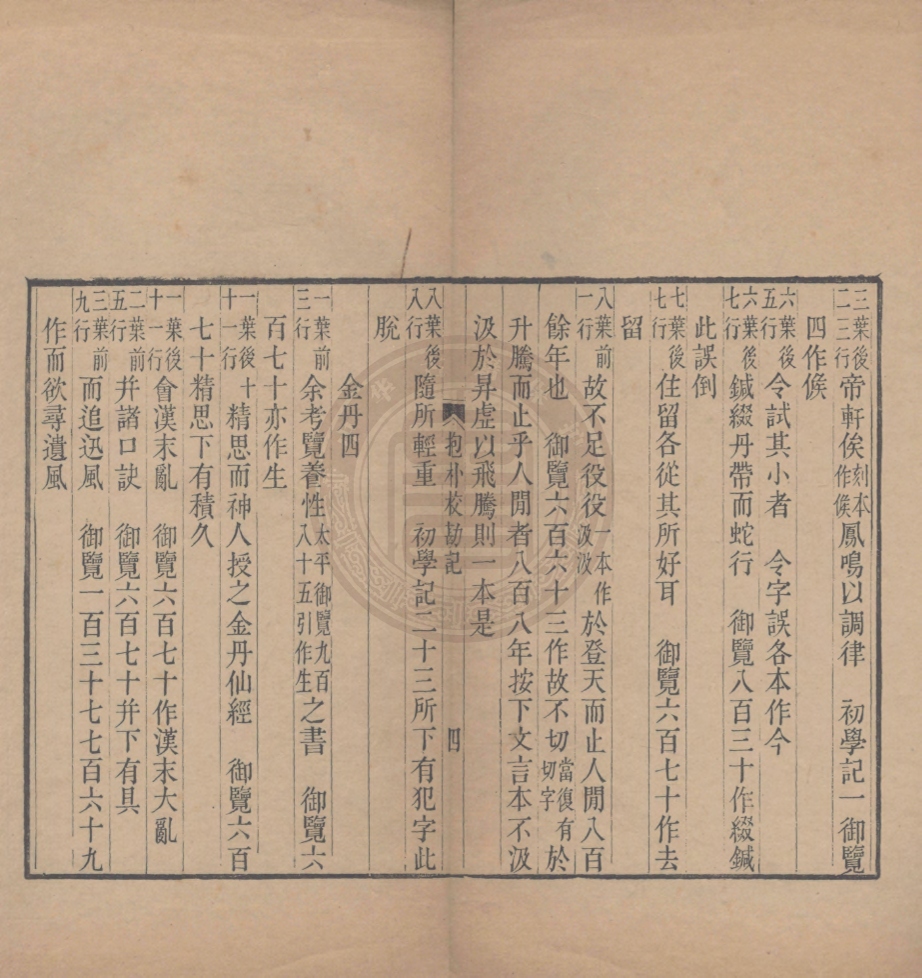 三葉後二三行帝軒俟刻本作候鳳鳴以調律　初學記一御覽
四作候
六葉後五行令試其小者　令字誤各本作今
六葉後七行鍼綴丹帶而蛇行　御覽八百三十作綴鍼
此誤倒
七葉後七行住留各從其所好耳　御覽六百七十作去
留
八葉前一行故不足役役一本作汲汲於登天而止人閒八百
餘年也　御覽六百六十三作故不切當復有切字於
升騰而止乎人閒者八百八年按下文言本不汲
汲於昇虛以飛騰則一本是
抱朴校勘記　四
八葉後八行隨所輕重　初學記二十三所下有犯字此
脫
金丹四
一葉前三行余考覽養性太平御覽九百八十五引作生之書　御覽六
百七十亦作生
一葉後十一行十精思而神人授之金丹仙經　御覽六百
七十精思下有積久
一葉後十一行會漢末亂　御覽六百七十作漢末大亂
二葉前五行幷諸口訣　御覽六百七十幷下有具
三葉前九行而追迅風　御覽一百三十七七百六十九
作而欲尋遺風